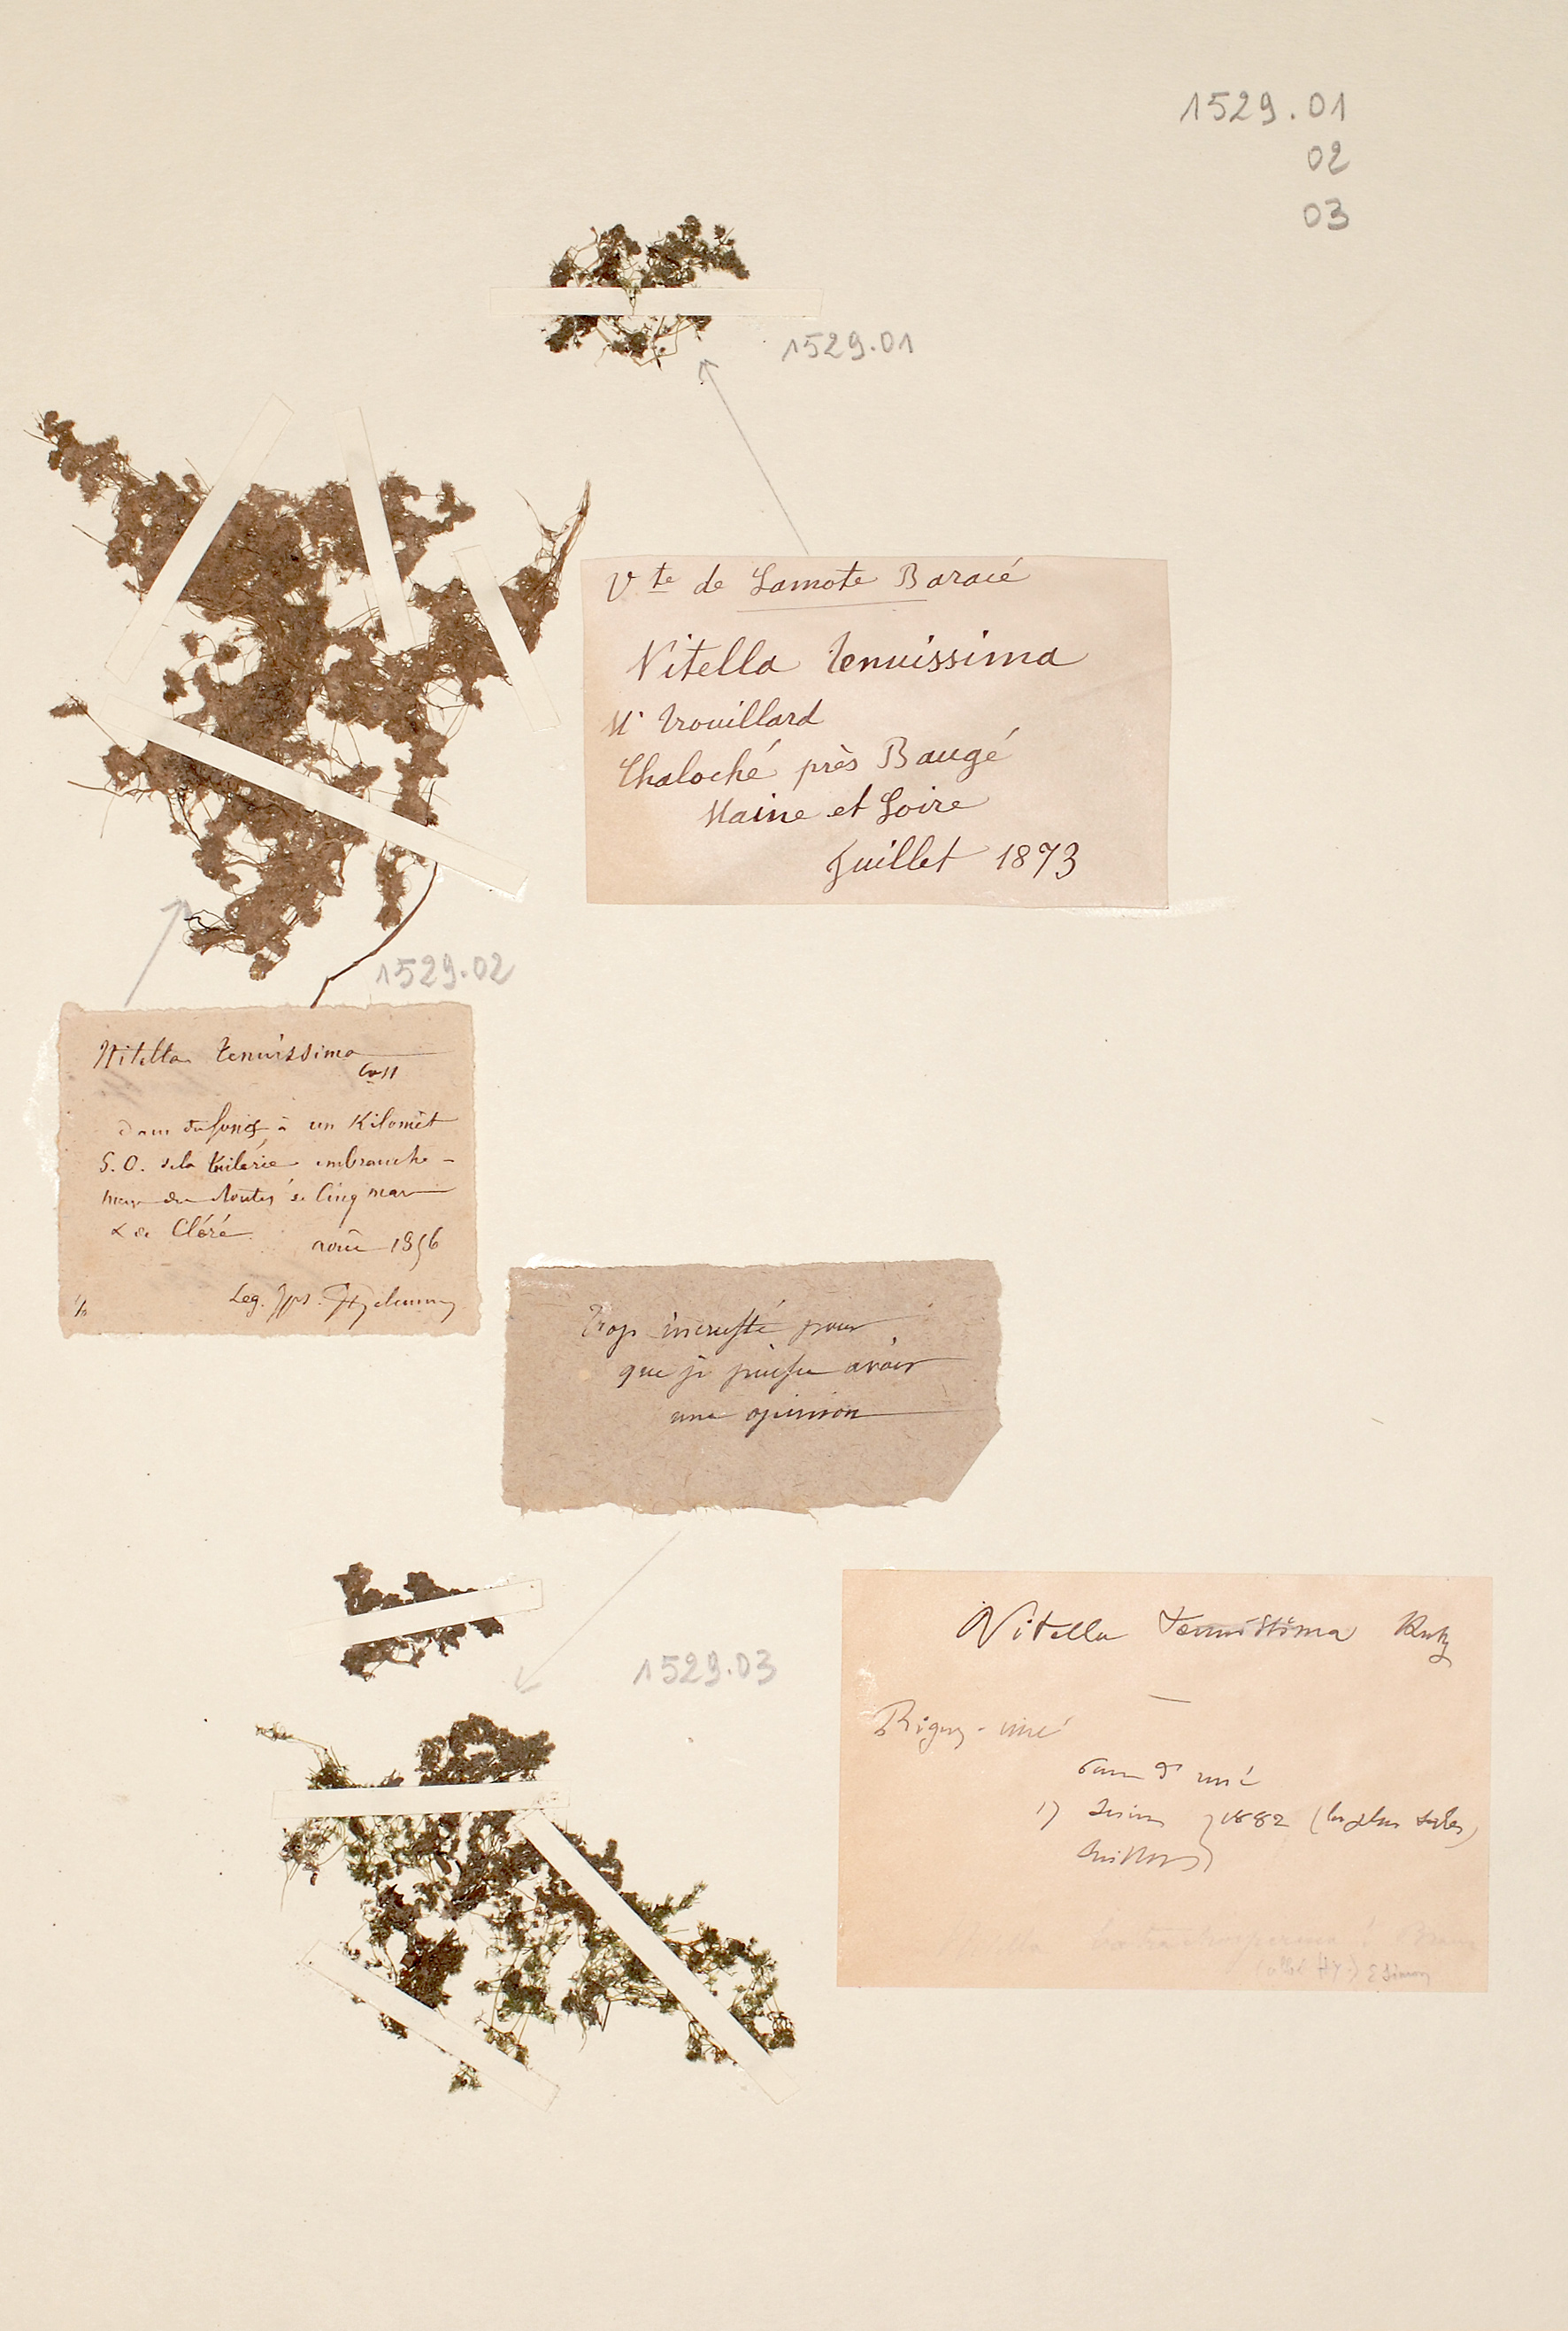 1529.01
02
03
1529.01
Vte de Lamote Baracé
Nitella tenuissima
Mr Trouillard
Chaloché près Baugé
Maine et Loire
Juillet 1873
1529.02
Nitella tenuissima
à un Kilomèt
S. O. de la tuilerie embranche-
de Cinq mar
& de Cléré
août 1856
Leg.
Trop incrusté pour
que je puisse avoir
une opinion
1529.03
Nitella tenuissima Kutz
Rigny-
17 Juin 1882
Nitella
E Simon